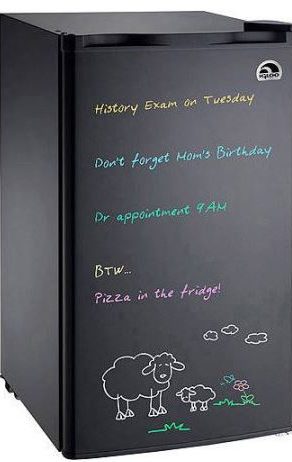 IGLOO
History Exam on Tuesday
Don't forget Mom's Birthday
Dr appointment 9AM
BTW...
Pizza in the fridge!